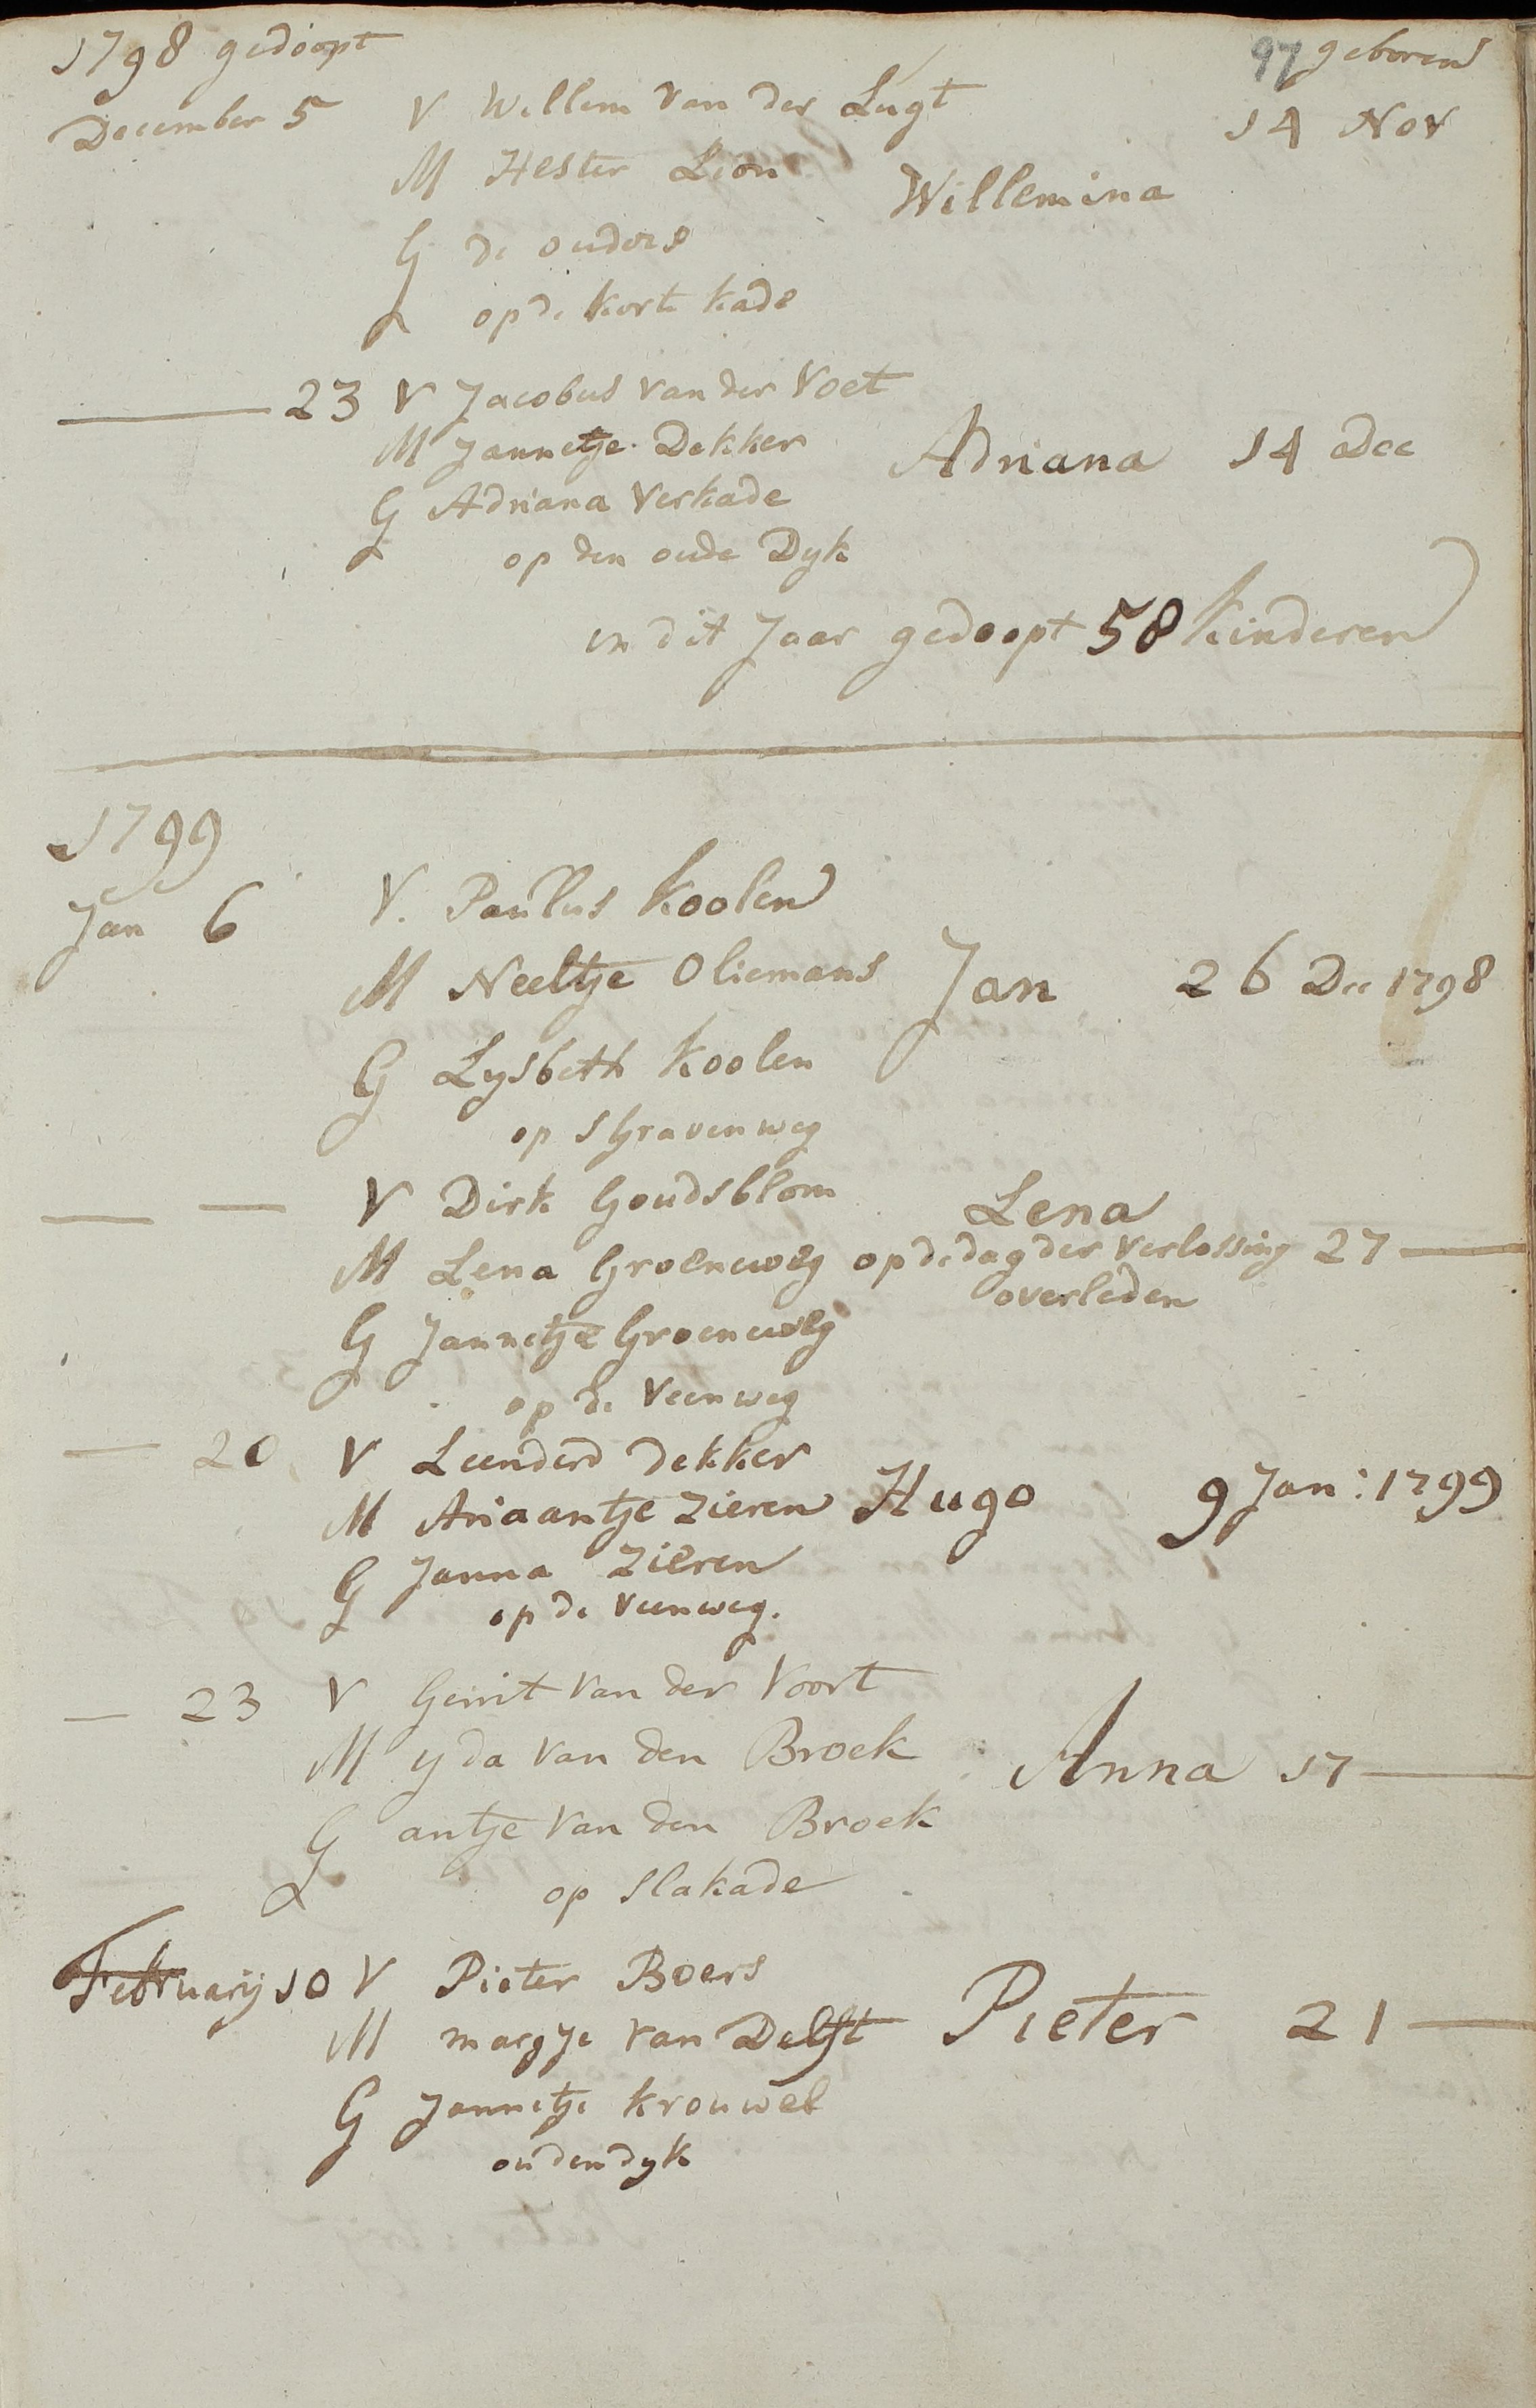 1798 gedoopt 97 geboren
December 5 V Willem van der Lugt 14 Nov
M Hester Lion Willemina
G de ouders
op de korte kade
23 V Jacobus van der Voet
M Jannetje Dekker Adriana 14 Dec
G Adriana Verkade
op den oude Dyk
in dit Jaar gedoopt 58 kinderen
1799
Jan 6 V. Paulus Koolen
M Neeltje Oliemans Jan 26 Dec 1798
G Lysbeth Koolen
op s Gravenweg
V Dirk Goudsblom Lena
M Lena Groeneweg op de dag der verlossing 27
overleden
G Jannetje Groeneweg
op de Veenweg
20 V Leenderd Dekker
M Ariaantje Zieren Hugo 9 Jan: 1799
G Janna Zieren
op de Veenweg.
23 V Gerrit van der Voort
M yda van den Broek Anna 17
G antje van den Broek
op Slakade
February 10 V Pieter Boers
M margje van Delft Pieter 21
G Jannetje Krouwel
oudendyk